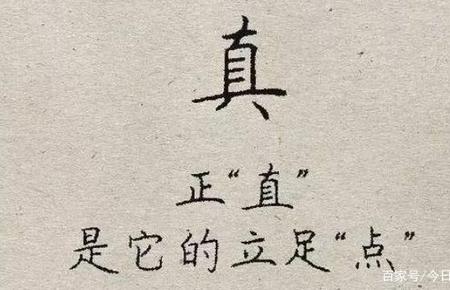 真
正“直”
是它的立足“点”
百家号/今日